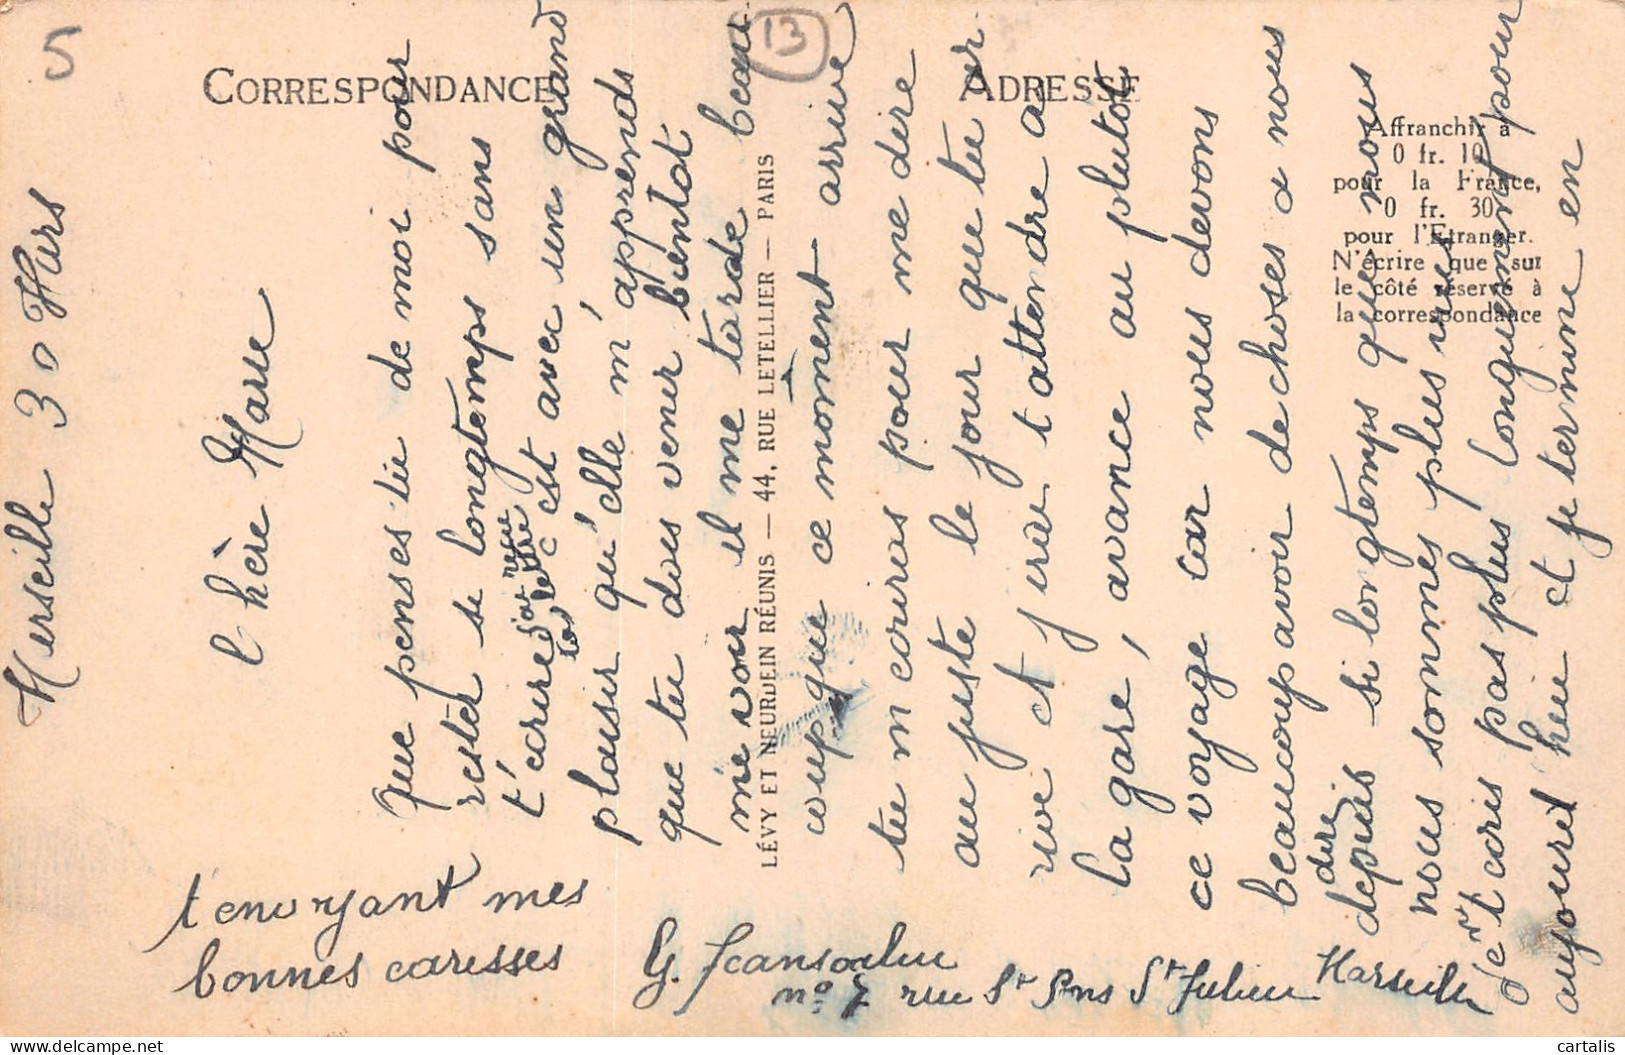 5
13
CORRESPONDANCE
ADRESSE
Affranchir à
0 fr. 10
pour la France,
0 fr. 30
pour l'Etranger.
N'écrire que sur
le côté réservé à
la correspondance
LÉVY ET NEURDEIN RÉUNIS — 44, RUE LETELLIER — PARIS
Merseille 30 Mars
Chère Marie
que penses tu de moi pour
rester si longtemps sans
t'ecrire j'ai reçu
ta lettre c est avec un grand
plaisir qu'elle m'apprends
que tu dois venir bientot
me voir il me tarde beau
coup que ce moment arrive
tu m ecriras pour me dire
au juste le jour que tu ar
rive et j irai t attendre a
la gare, avance au plutôt
ce voyage car nous devons
beaucoup avoir de choses a nous
dire
depuis si longtemps que nous
nous sommes plus vus
Je n t ecris pas plus longuement pour
aujourd hui et je termine en
t envoyant mes
bonnes caresses
n° 7 rue St Pons St Julien Marseille
cartalis